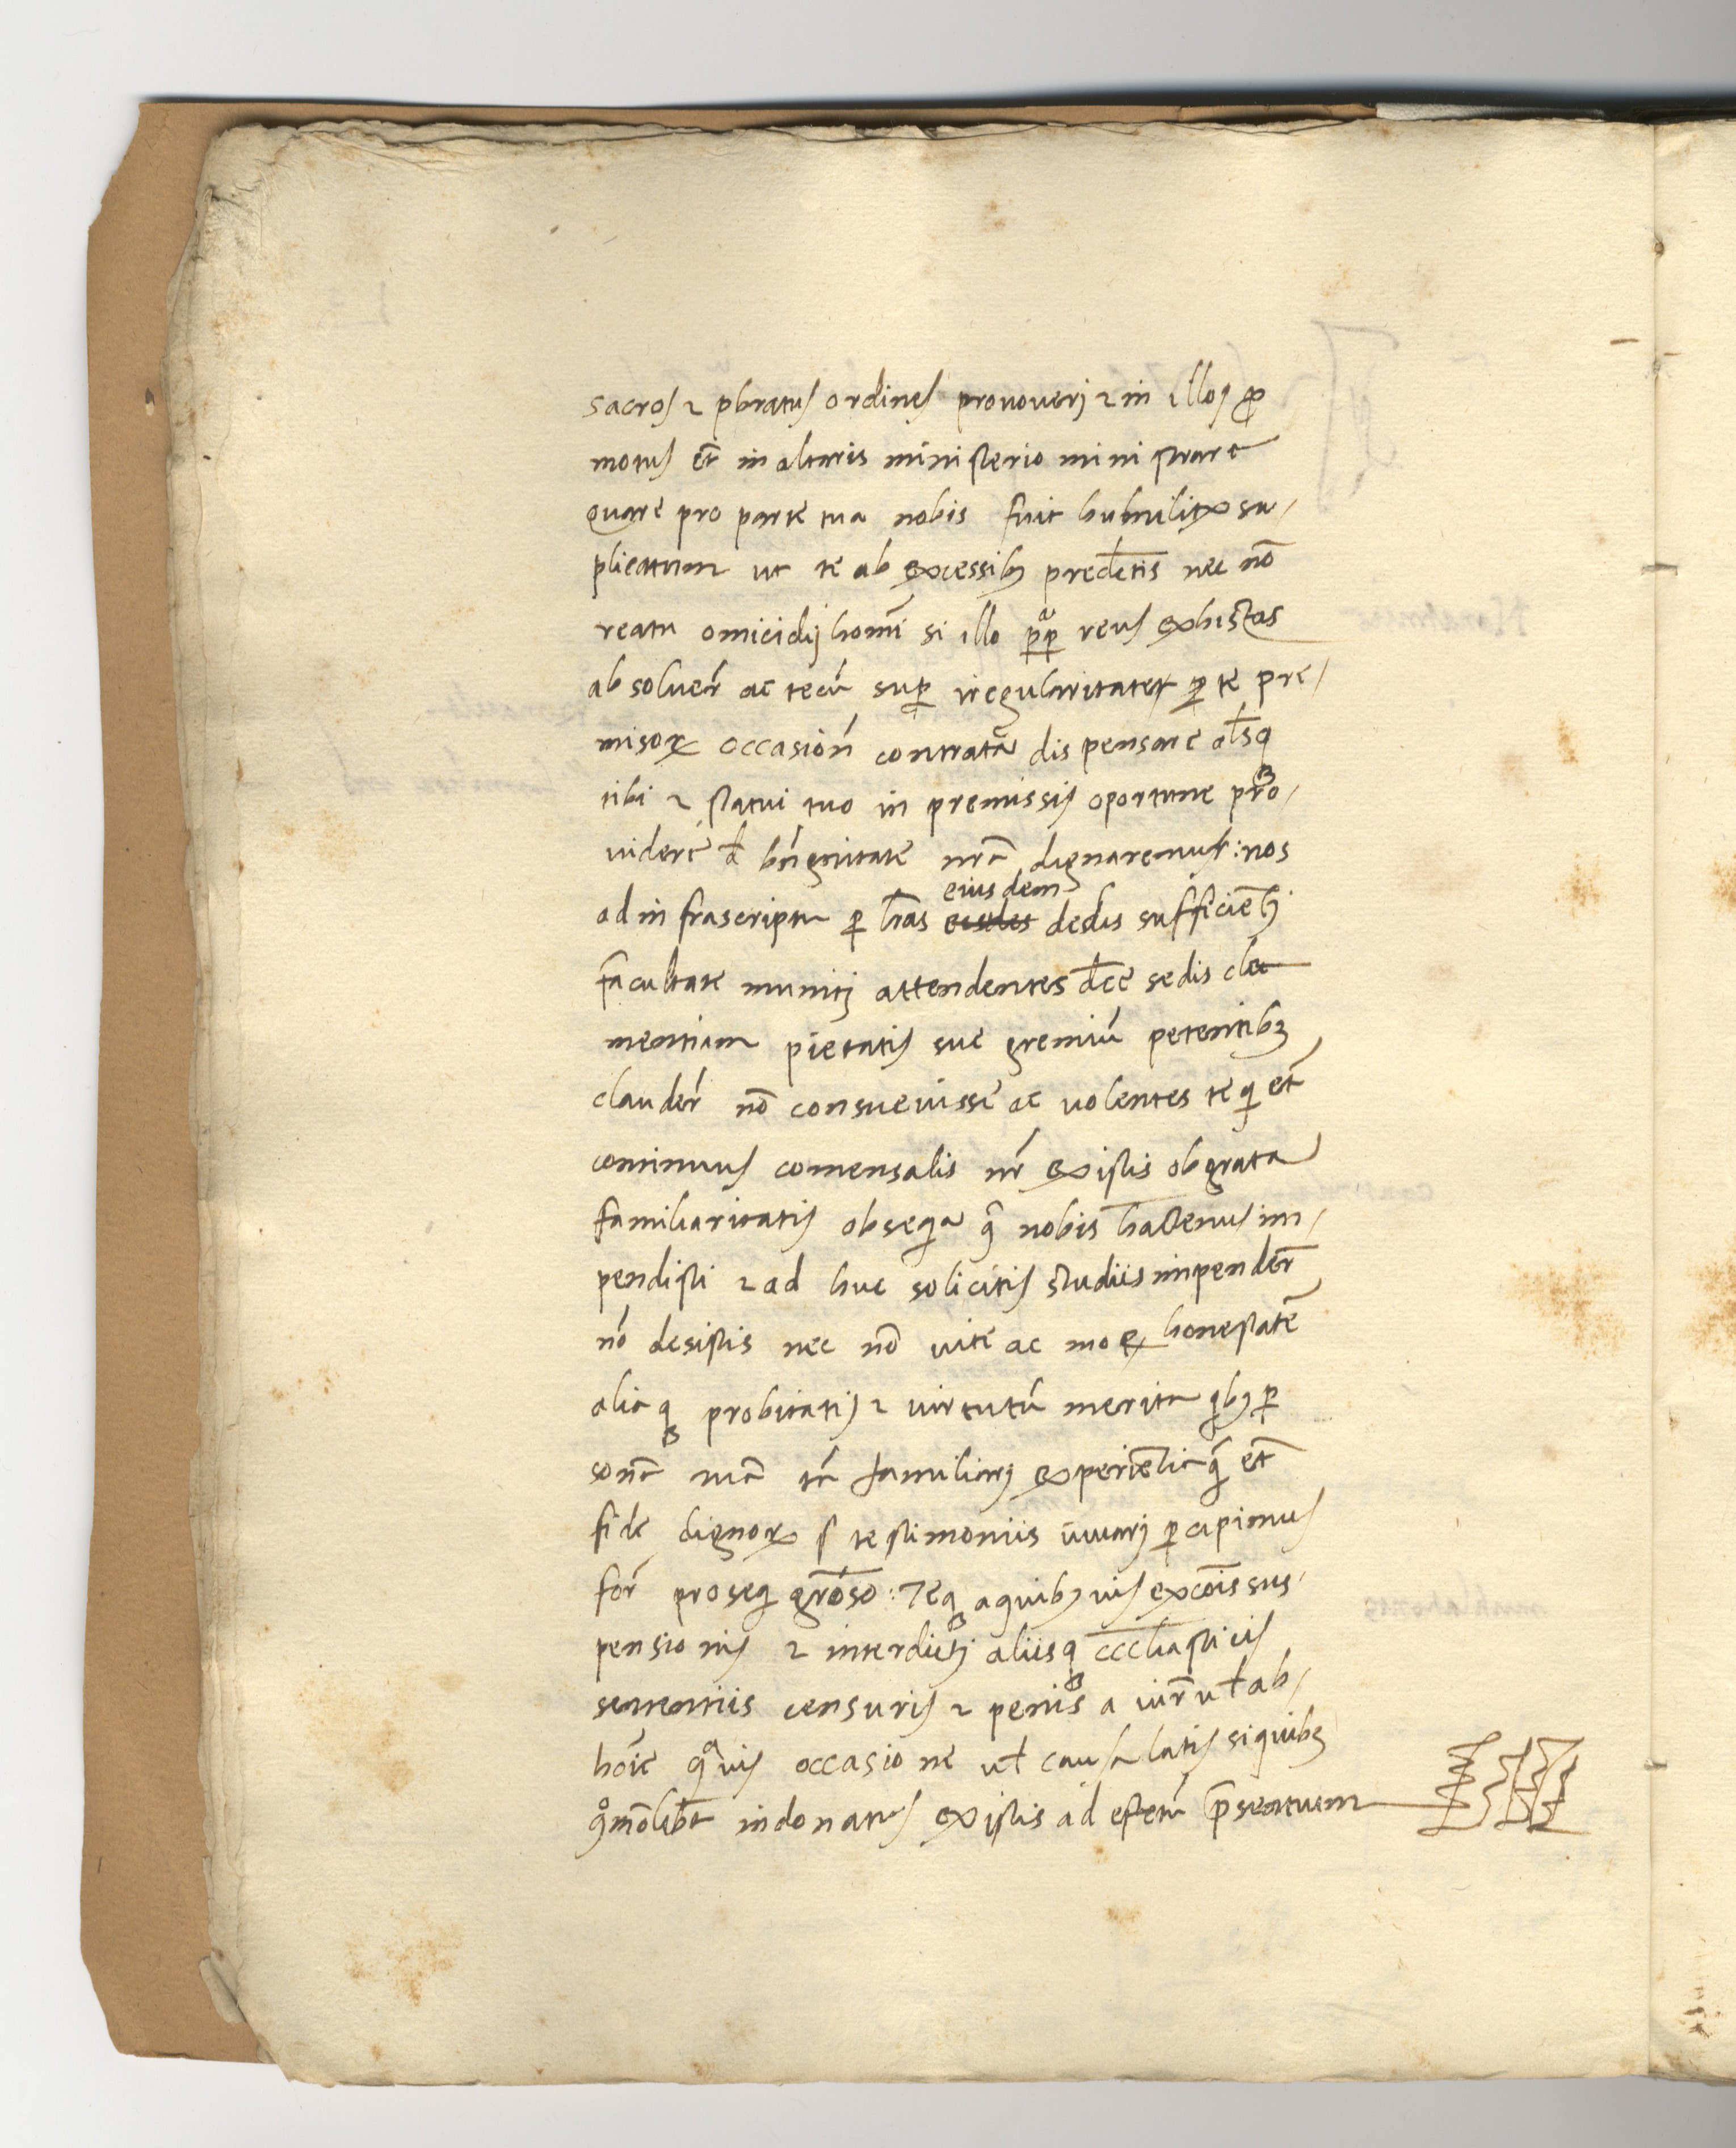 sacros ⁊ pbratus ordines promoveri ⁊ in illos ꝓ
motus et̄ in altaris ministerio ministrare
quare pro parte tua nobis fuit humilit su-
plicatum ut te ab excessibȝ predctis nec nō
reatu omicidij homī si illo reus exhistas
absoluer̄ ac tecū sup̱ iregularitate ꝑ te pre-
misoꝝ occasion̄ contracta dispensare alsqȝ
tibi ⁊ statui tuo in premissis oportune pro-
videre d bn̄gnitate nr̄a dignaremur: nos
ad infrascripta ꝑ lr̄as eiusdem sedis sufficientj
facultate munitj attendentes dc̄e sedis cle
mentiam pietatis sue gremiū petentibȝ
clauder̄ nō consuevisse ac volentes te qi et̄
continuus comensalis nr̄ existis ob grata
familiaritatis obsequia q̄ nobis hactenus im-
pendisti ⁊ ad huc solicitis studiis impender̄
nō desistis nec nō vite ac moꝝ honestatē
aliaqȝ probitatis ⁊ virtutū merita qibȝ ꝑ
sonā tuā tā familiarj experientia q̄ et̄
fide dignoꝝ testimoniis iuvarj ꝑcipimus
for̄ proseqi gr̄oso: Teqȝ a quibȝvis excōis sus-
pensionis ⁊ interdictj aliisqȝ eccl̄iasticis
sententiis censuris ⁊ penis a iur̄ vł ab-
hoīe qavis occasione vł causa latis si quibȝ
qomōlibt indonatus existis ad efectū p̄sentium